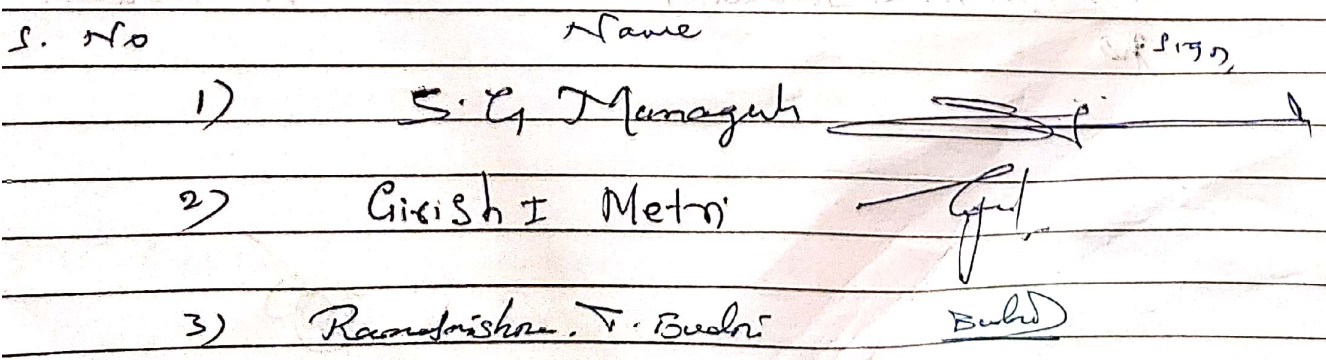 S. No Name Sign,
1) S. G Managuli
2) Girish I Metri
3) Ramakrishna. T. Budni Budni